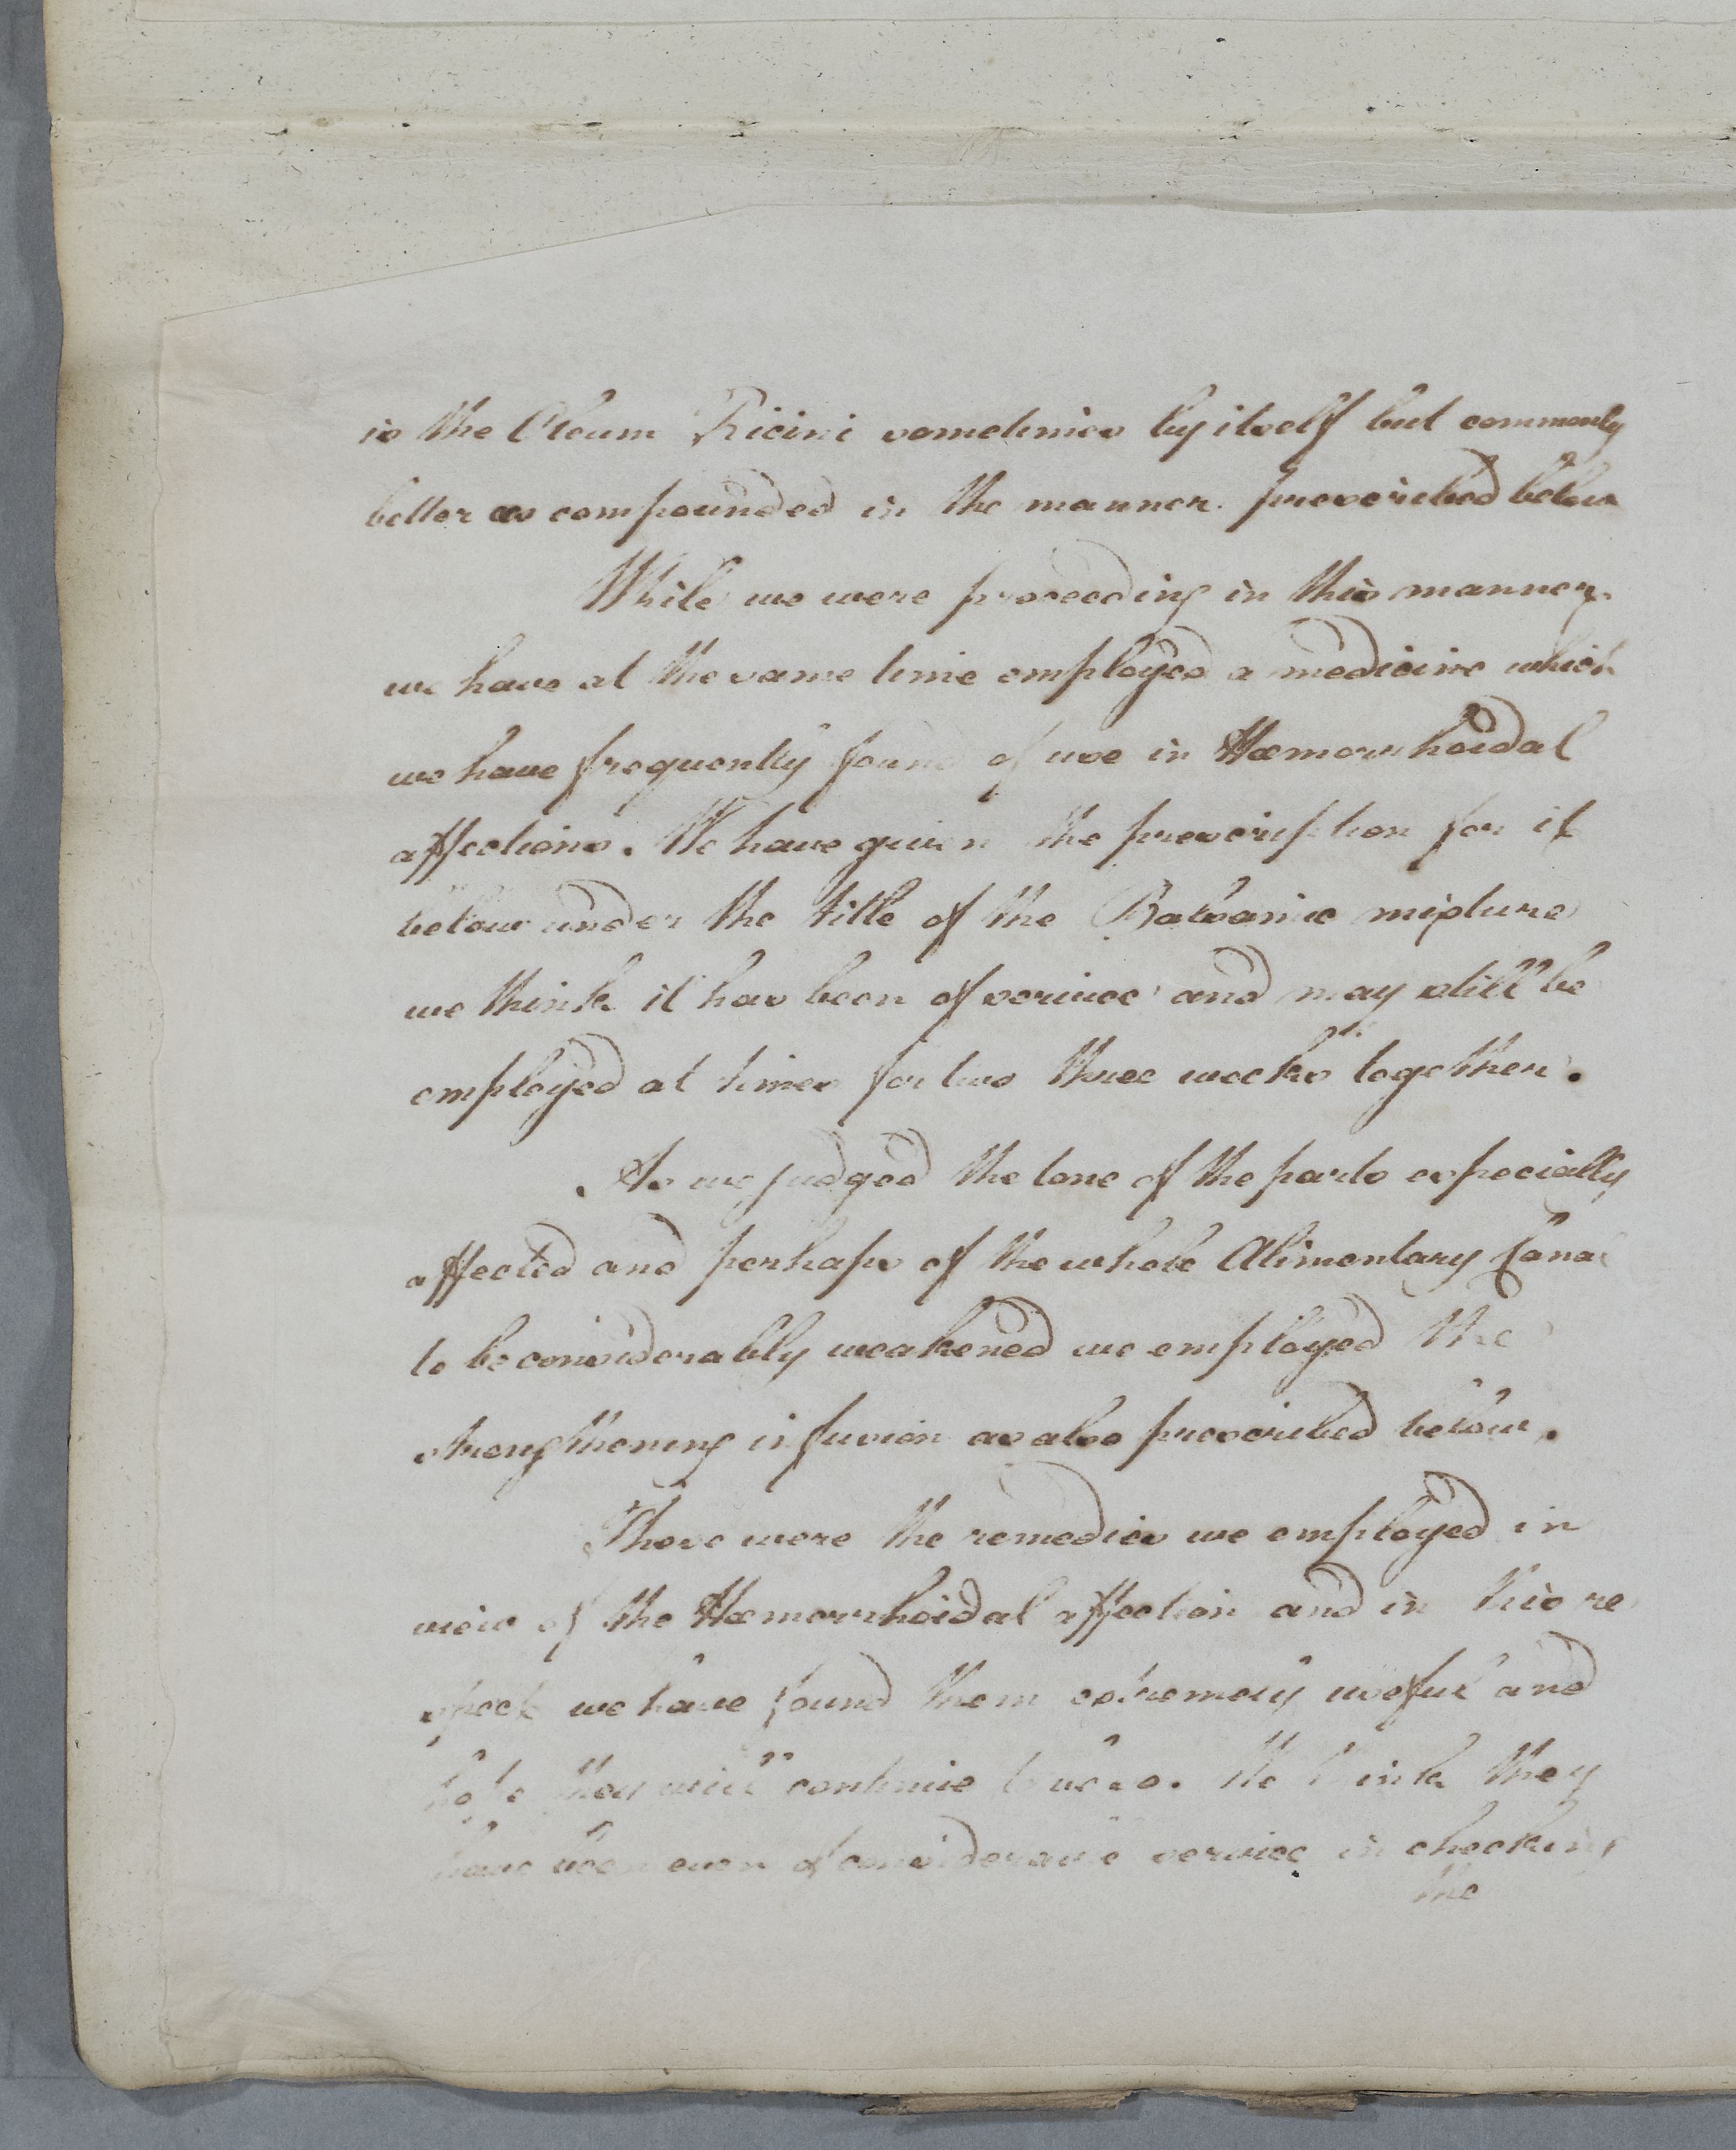 is the Oleum Ricini sometimes by itself but commonly
better as compounded in the manner prescribed below
While we were proceeding in this manner
we have at the same time employed a medicine which
we have frequently found of use in Hæmorrhoidal
affections. We have given the prescription for it
below under the title of the Balsamic mixture
we think it has been of service and may still be
employed at times for two three weeks together.
As we judged the tone of the parts especially
affected and perhaps of the whole Alimentary Canal
to be considerably weakened we employed the
strengthening infusion as also prescribed below.
These were the remedies we employed in
view of the Hæmorrhoidal affection and in this re
spect we have found them extremely useful and
hope they will continue to be so. We think they
have been even of considerable service in checking
the